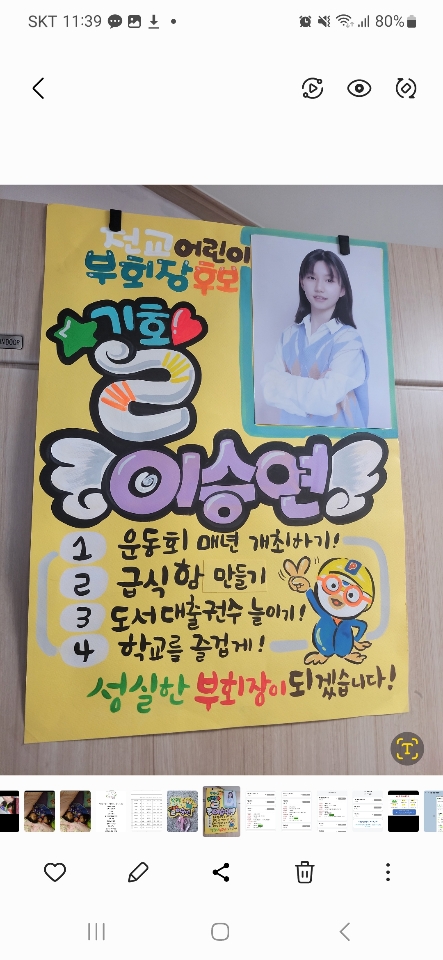 SKT 11:39
80%
전교어린이
부회장후보
기호
2
이승연
1 운동회 매년 개최하기!
2 급식함 만들기
3 도서대출권수 늘이기!
4 학교를 즐겁게!
성실한 부회장이되겠습니다!
T